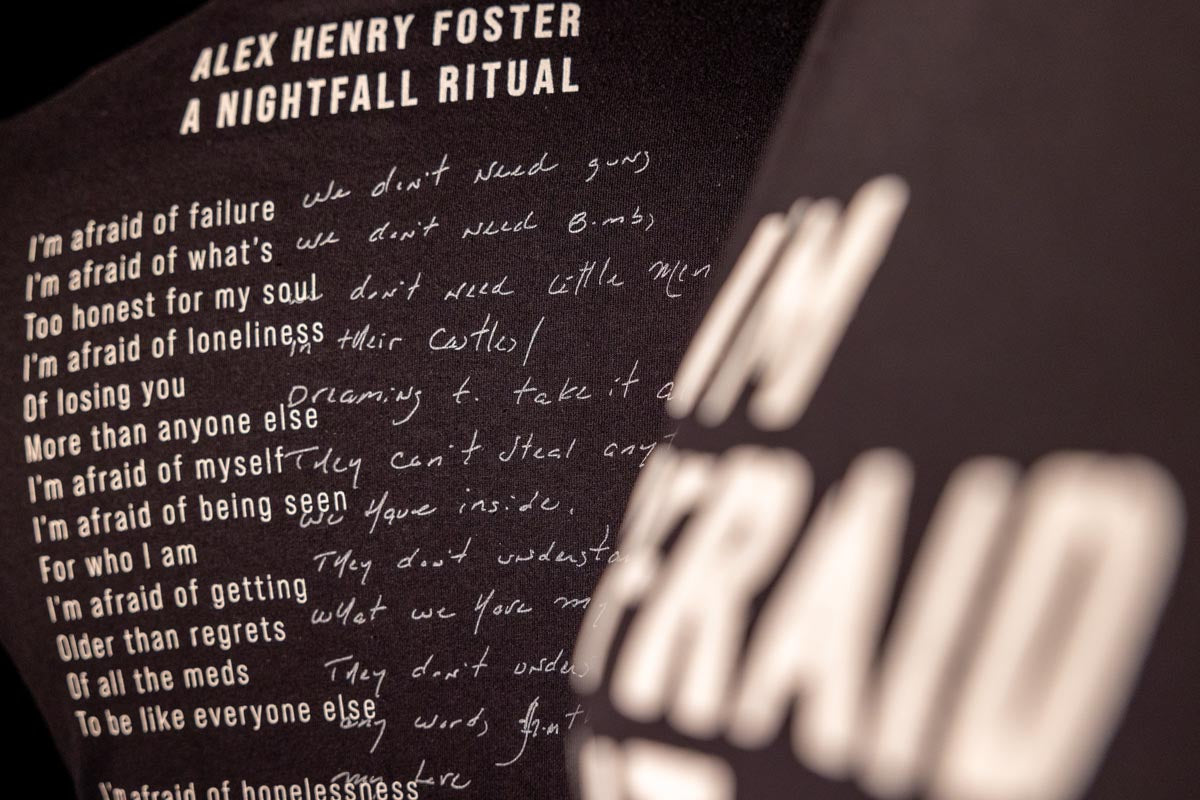 ALEX HENRY FOSTER
A NIGHTFALL RITUAL
I'm afraid of failure
I'm afraid of what's
Too honest for my soul
I'm afraid of loneliness
Of losing you
More than anyone else
I'm afraid of myself
I'm afraid of being seen
For who I am
I'm afraid of getting
Older than regrets
Of all the meds
To be like everyone else
I'm afraid of hopelessness
we don't need guns
we don't need Bombs
don't need little men
in their castles
Dreaming to take it
They can't steal
we have inside.
They don't
what we have
They don't
any words
my love
I'M
AFRAID